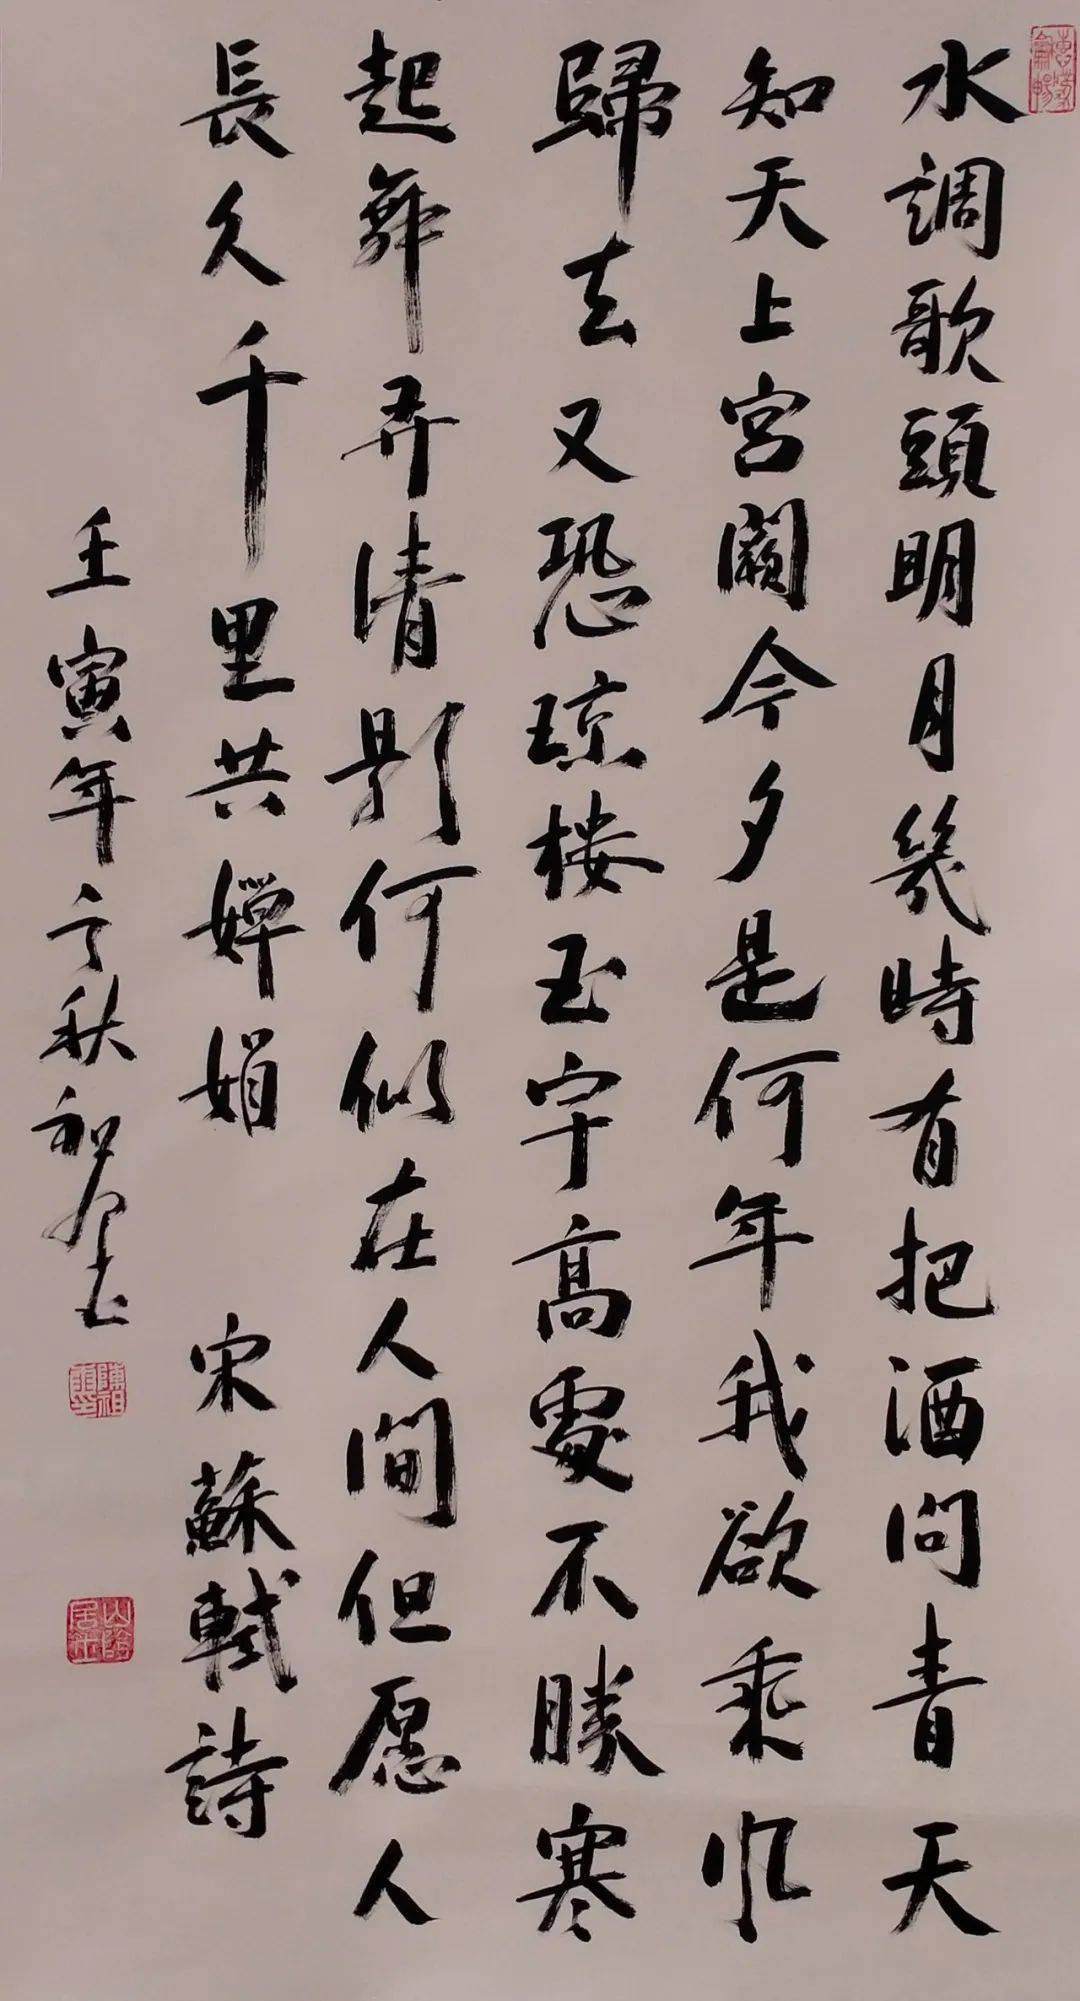 水調歌頭明月幾時有把酒問青天
知天上宮闕今夕是何年我欲乘風
歸去又恐琼楼玉宇高處不勝寒
起舞弄清影何似在人間但愿人
長久千里共嬋娟 宋蘇軾詩
壬寅年之秋